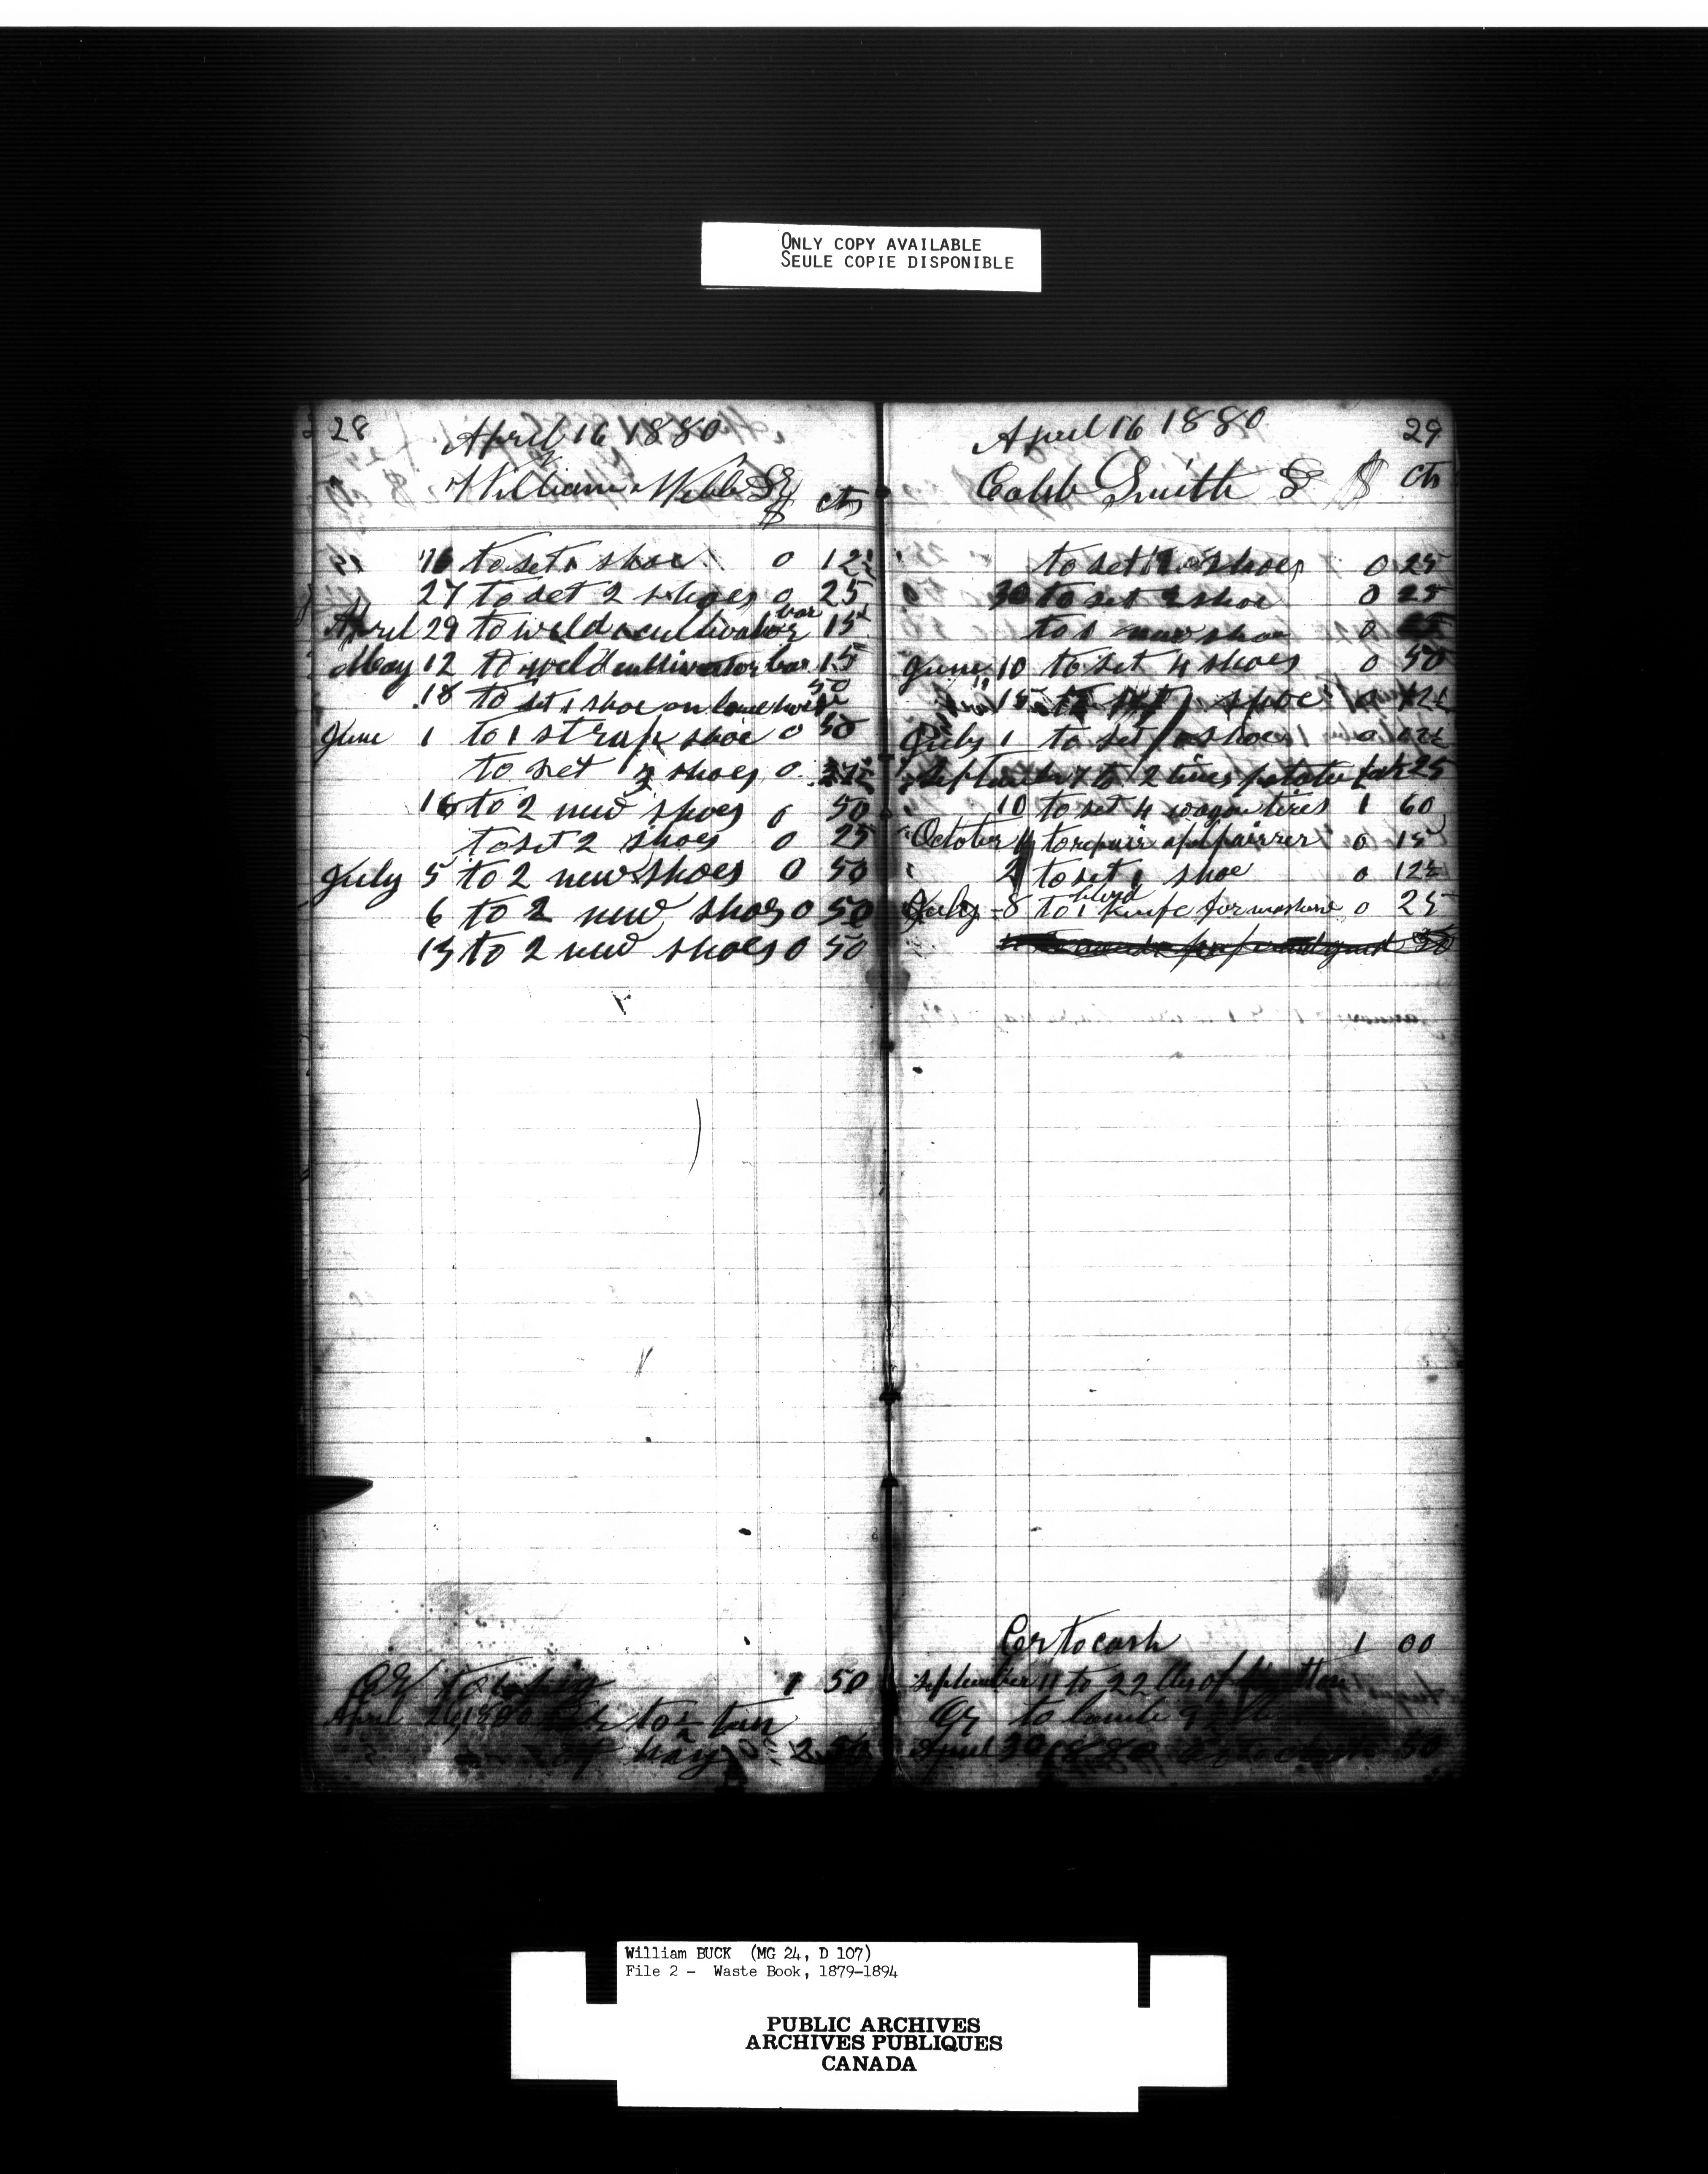 ONLY COPY AVAILABLE
SEULE COPIE DISPONIBLE
28
April 16 1880
William Webb Dr
$ cts
16 to set 1 shoe 0 12½
27 to set 2 shoes 0 25
April 29 to weld cultivator bar 15
May 12 to weld cultivator bar 15
18 to set 1 shoe on lame horse 50
June 1 to 1 strap shoe 0 50
to set 3 shoes 0 37½
16 to 2 new shoes 0 50
to set 2 shoes 0 25
July 5 to 2 new shoes 0 50
6 to 2 new shoes 0 50
15 to 2 new shoes 0 50
Cr to 1 50
April 1880 Cr to ½ tun
of hay 2 50
April 16 1880 29
Caleb Smith $ cts
to set 2 shoes 0 25
30 to set 2 shoe 0 25
to 1 new shoe 0
June 10 to set 4 shoes 0 50
15 to set 1 shoe 0 12½
July 1 to set 1 shoe 0 12½
September 7 to 2 tines potato fork 25
10 to set 4 wagon tires 1 60
October to repair 0 15
2 to set 1 shoe 0 12½
July 8 to 1 knife for 0 25
50
Cr to cash 1 00
September 11 to 22 lbs of Mutton
Cr to lamb 9½ lb
April 30 1880 Cr to cash 50
William BUCK (MG 24, D 107)
File 2 - Waste Book, 1879-1894
PUBLIC ARCHIVES
ARCHIVES PUBLIQUES
CANADA